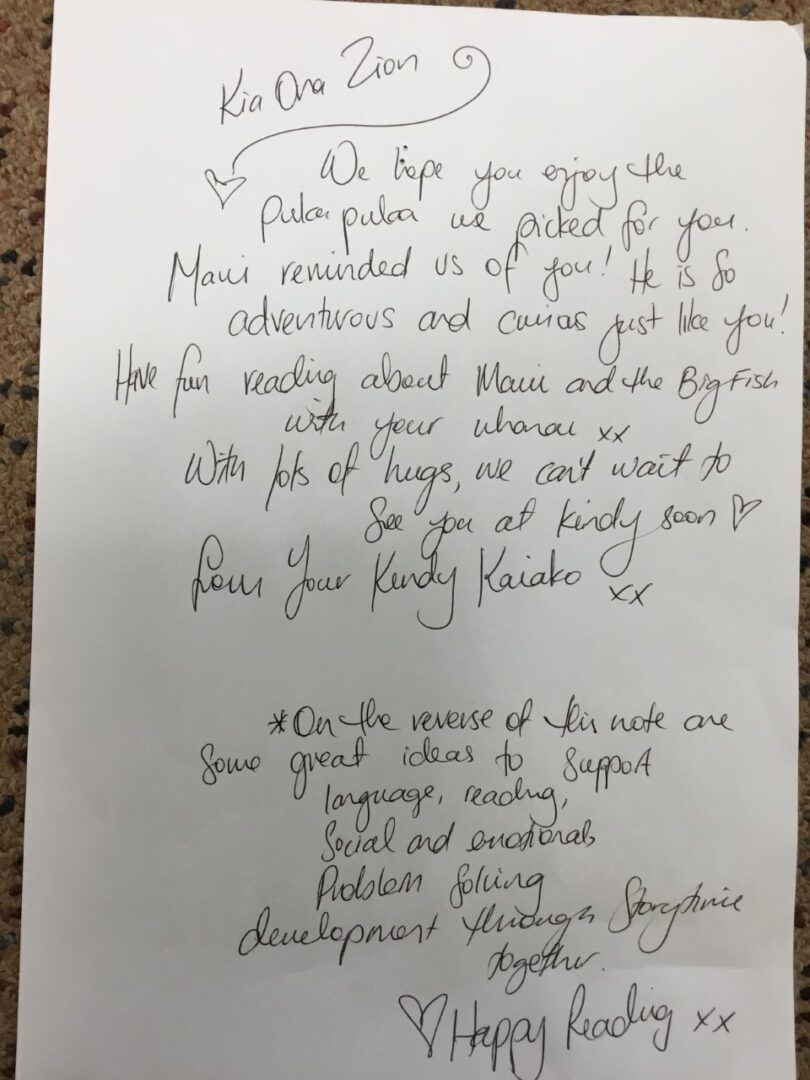 Kia Ora Zion
We hope you enjoy the
puka puka we picked for you.
Maui reminded us of you! He is so
adventurous and curious just like you!
Have fun reading about Maui and the Big Fish
with your whanau xx
With lots of hugs, we can't wait to
see you at kindy soon ♡
from Your Kindy Kaiako xx
*On the reverse of this note are
some great ideas to support
language, reading,
social and emotional &
Problem Solving
development through Storytime
together.
♡ Happy Reading xx